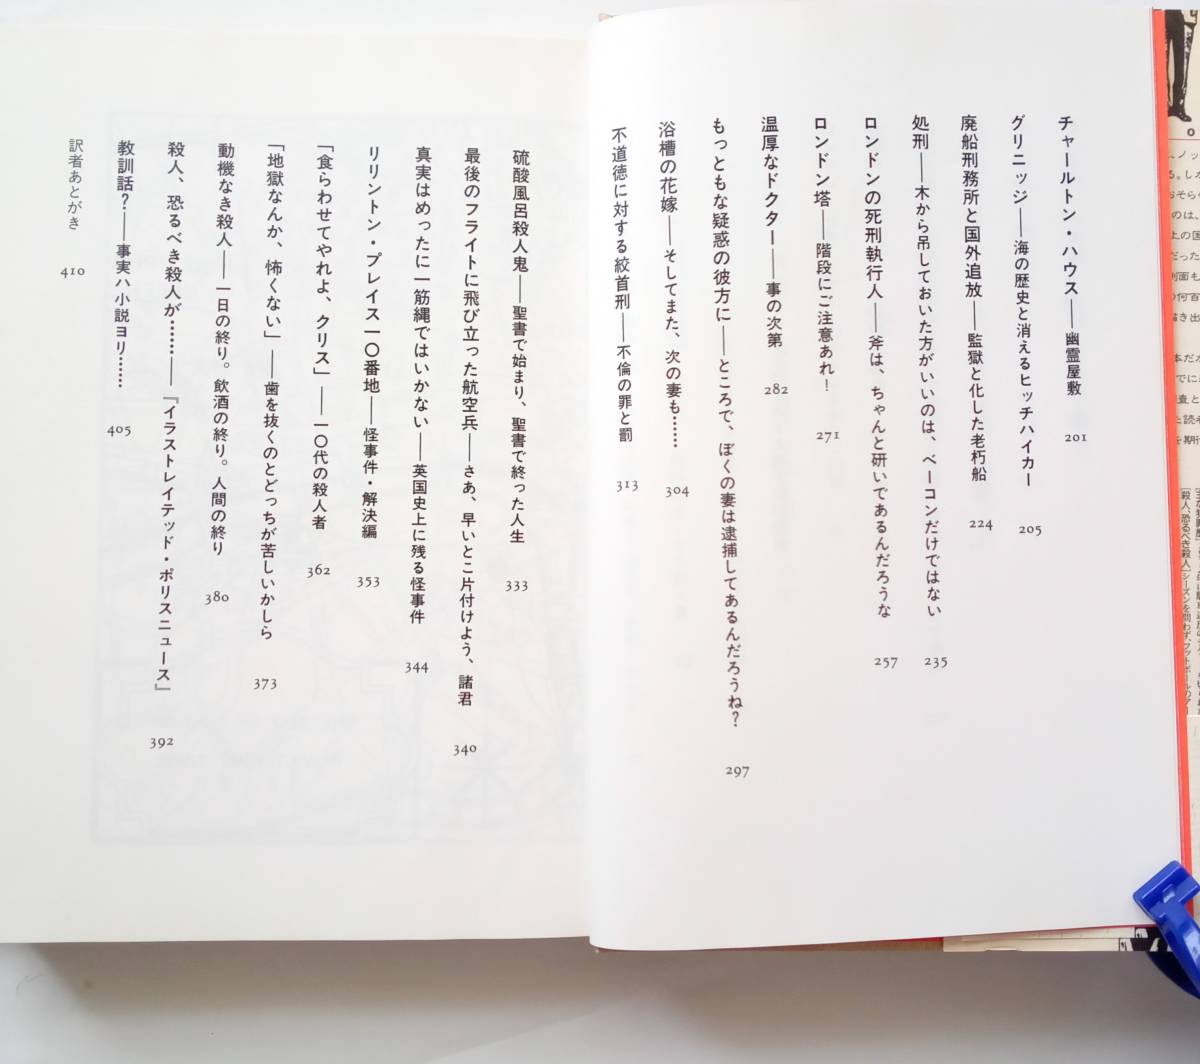 チャールトン・ハウス――幽霊屋敷 201
グリニッジ――海の歴史と消えるヒッチハイカー 205
廃船刑務所と国外追放――監獄と化した老朽船 224
処刑――木から吊しておいた方がいいのは、ベーコンだけではない 235
ロンドンの死刑執行人――斧は、ちゃんと研いであるんだろうな 257
ロンドン塔――階段にご注意あれ! 271
温厚なドクター――事の次第 282
もっともな疑惑の彼方に――ところで、ぼくの妻は逮捕してあるんだろうね? 297
浴槽の花嫁――そしてまた、次の妻も…… 304
不道徳に対する絞首刑――不倫の罪と罰 313
硫酸風呂殺人鬼――聖書で始まり、聖書で終った人生 333
最後のフライトに飛び立った航空兵――さあ、早いとこ片付けよう、諸君 340
真実はめったに一筋縄ではいかない――英国史上に残る怪事件 344
リリントン・プレイス一〇番地――怪事件・解決編 353
「食らわせてやれよ、クリス」――一〇代の殺人者 362
「地獄なんか、怖くない」――歯を抜くのとどっちが苦しいかしら 373
動機なき殺人――一日の終り。飲酒の終り。人間の終り 380
殺人、恐るべき殺人が……――『イラストレイテッド・ポリスニュース』 392
教訓話?――事実ハ小説ヨリ…… 405
訳者あとがき 410